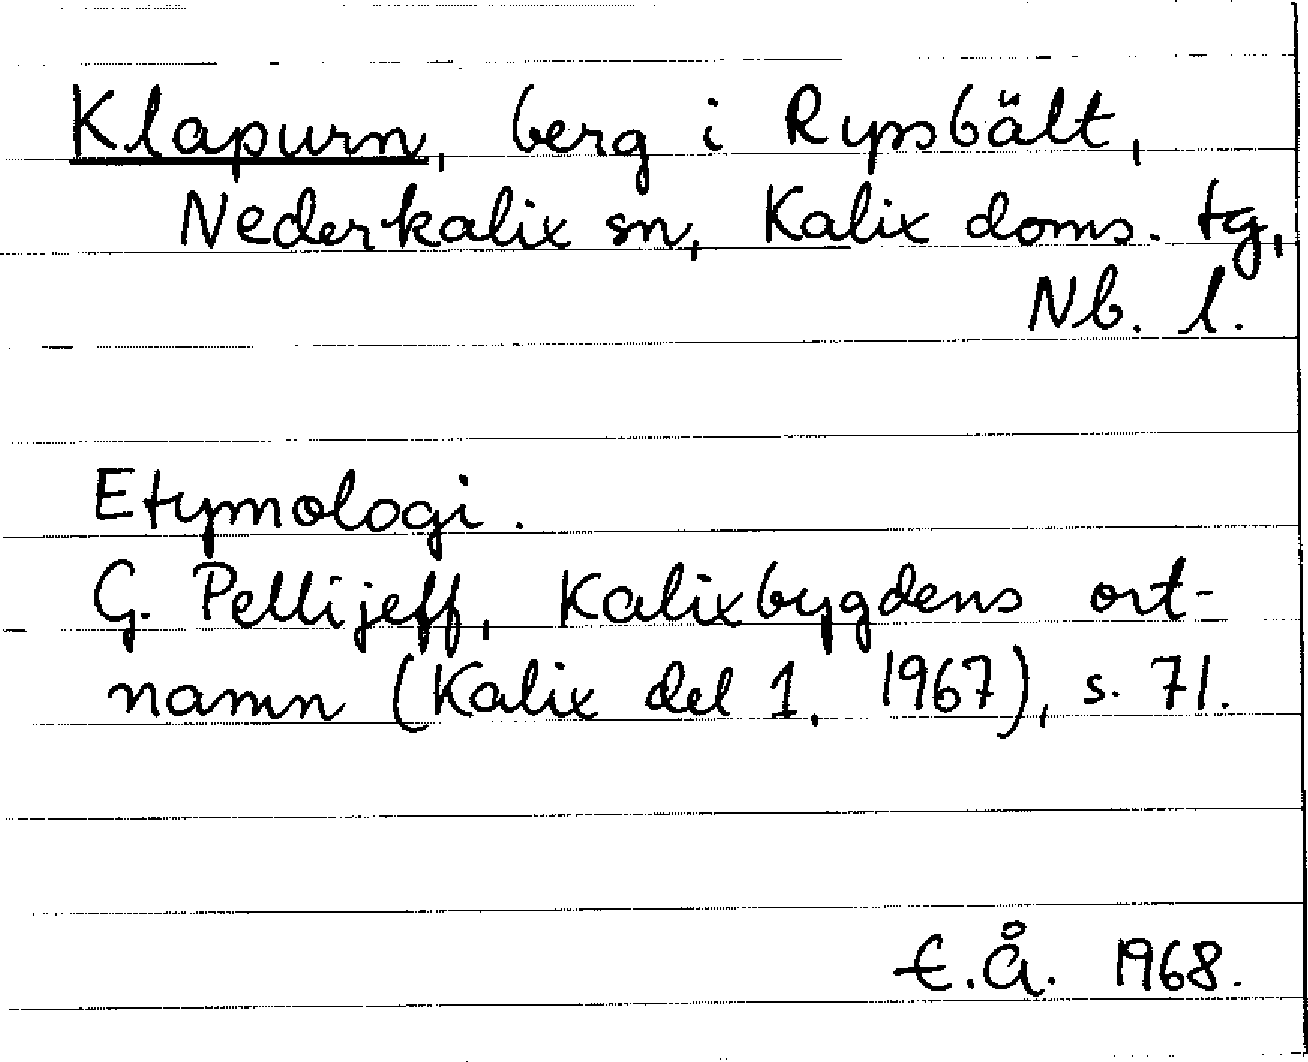 Klapurn, berg i Ryssbält,
Nederkalix sn, Kalix doms. tg,
Nb. l.
Etymologi.
G. Pellijeff, Kalixbygdens ort-
namn (Kalix del 1, 1967), s. 71.
E.Å. 1968.